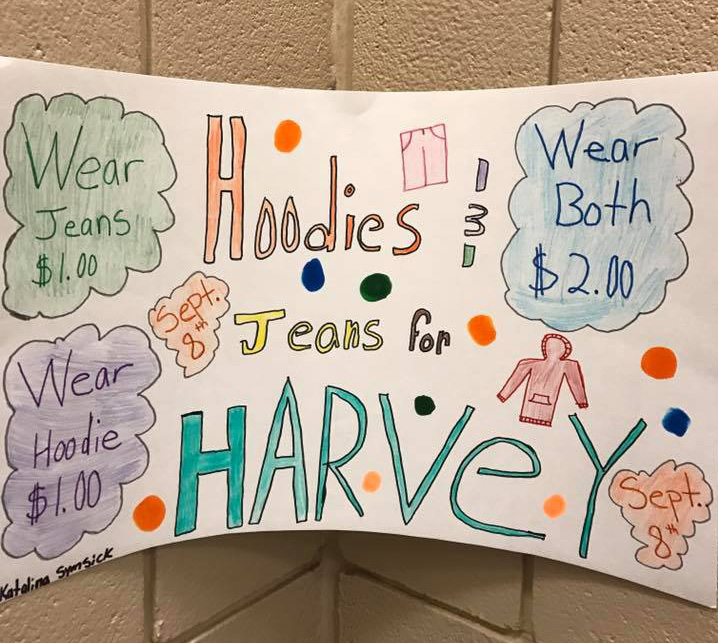 Wear
Jeans
$1.00
Hoodies &
Wear
Both
$2.00
Sept.
8th
Jeans for
Wear
Hoodie
$1.00
HARVeY
Sept.
8th
Katalina Symsick